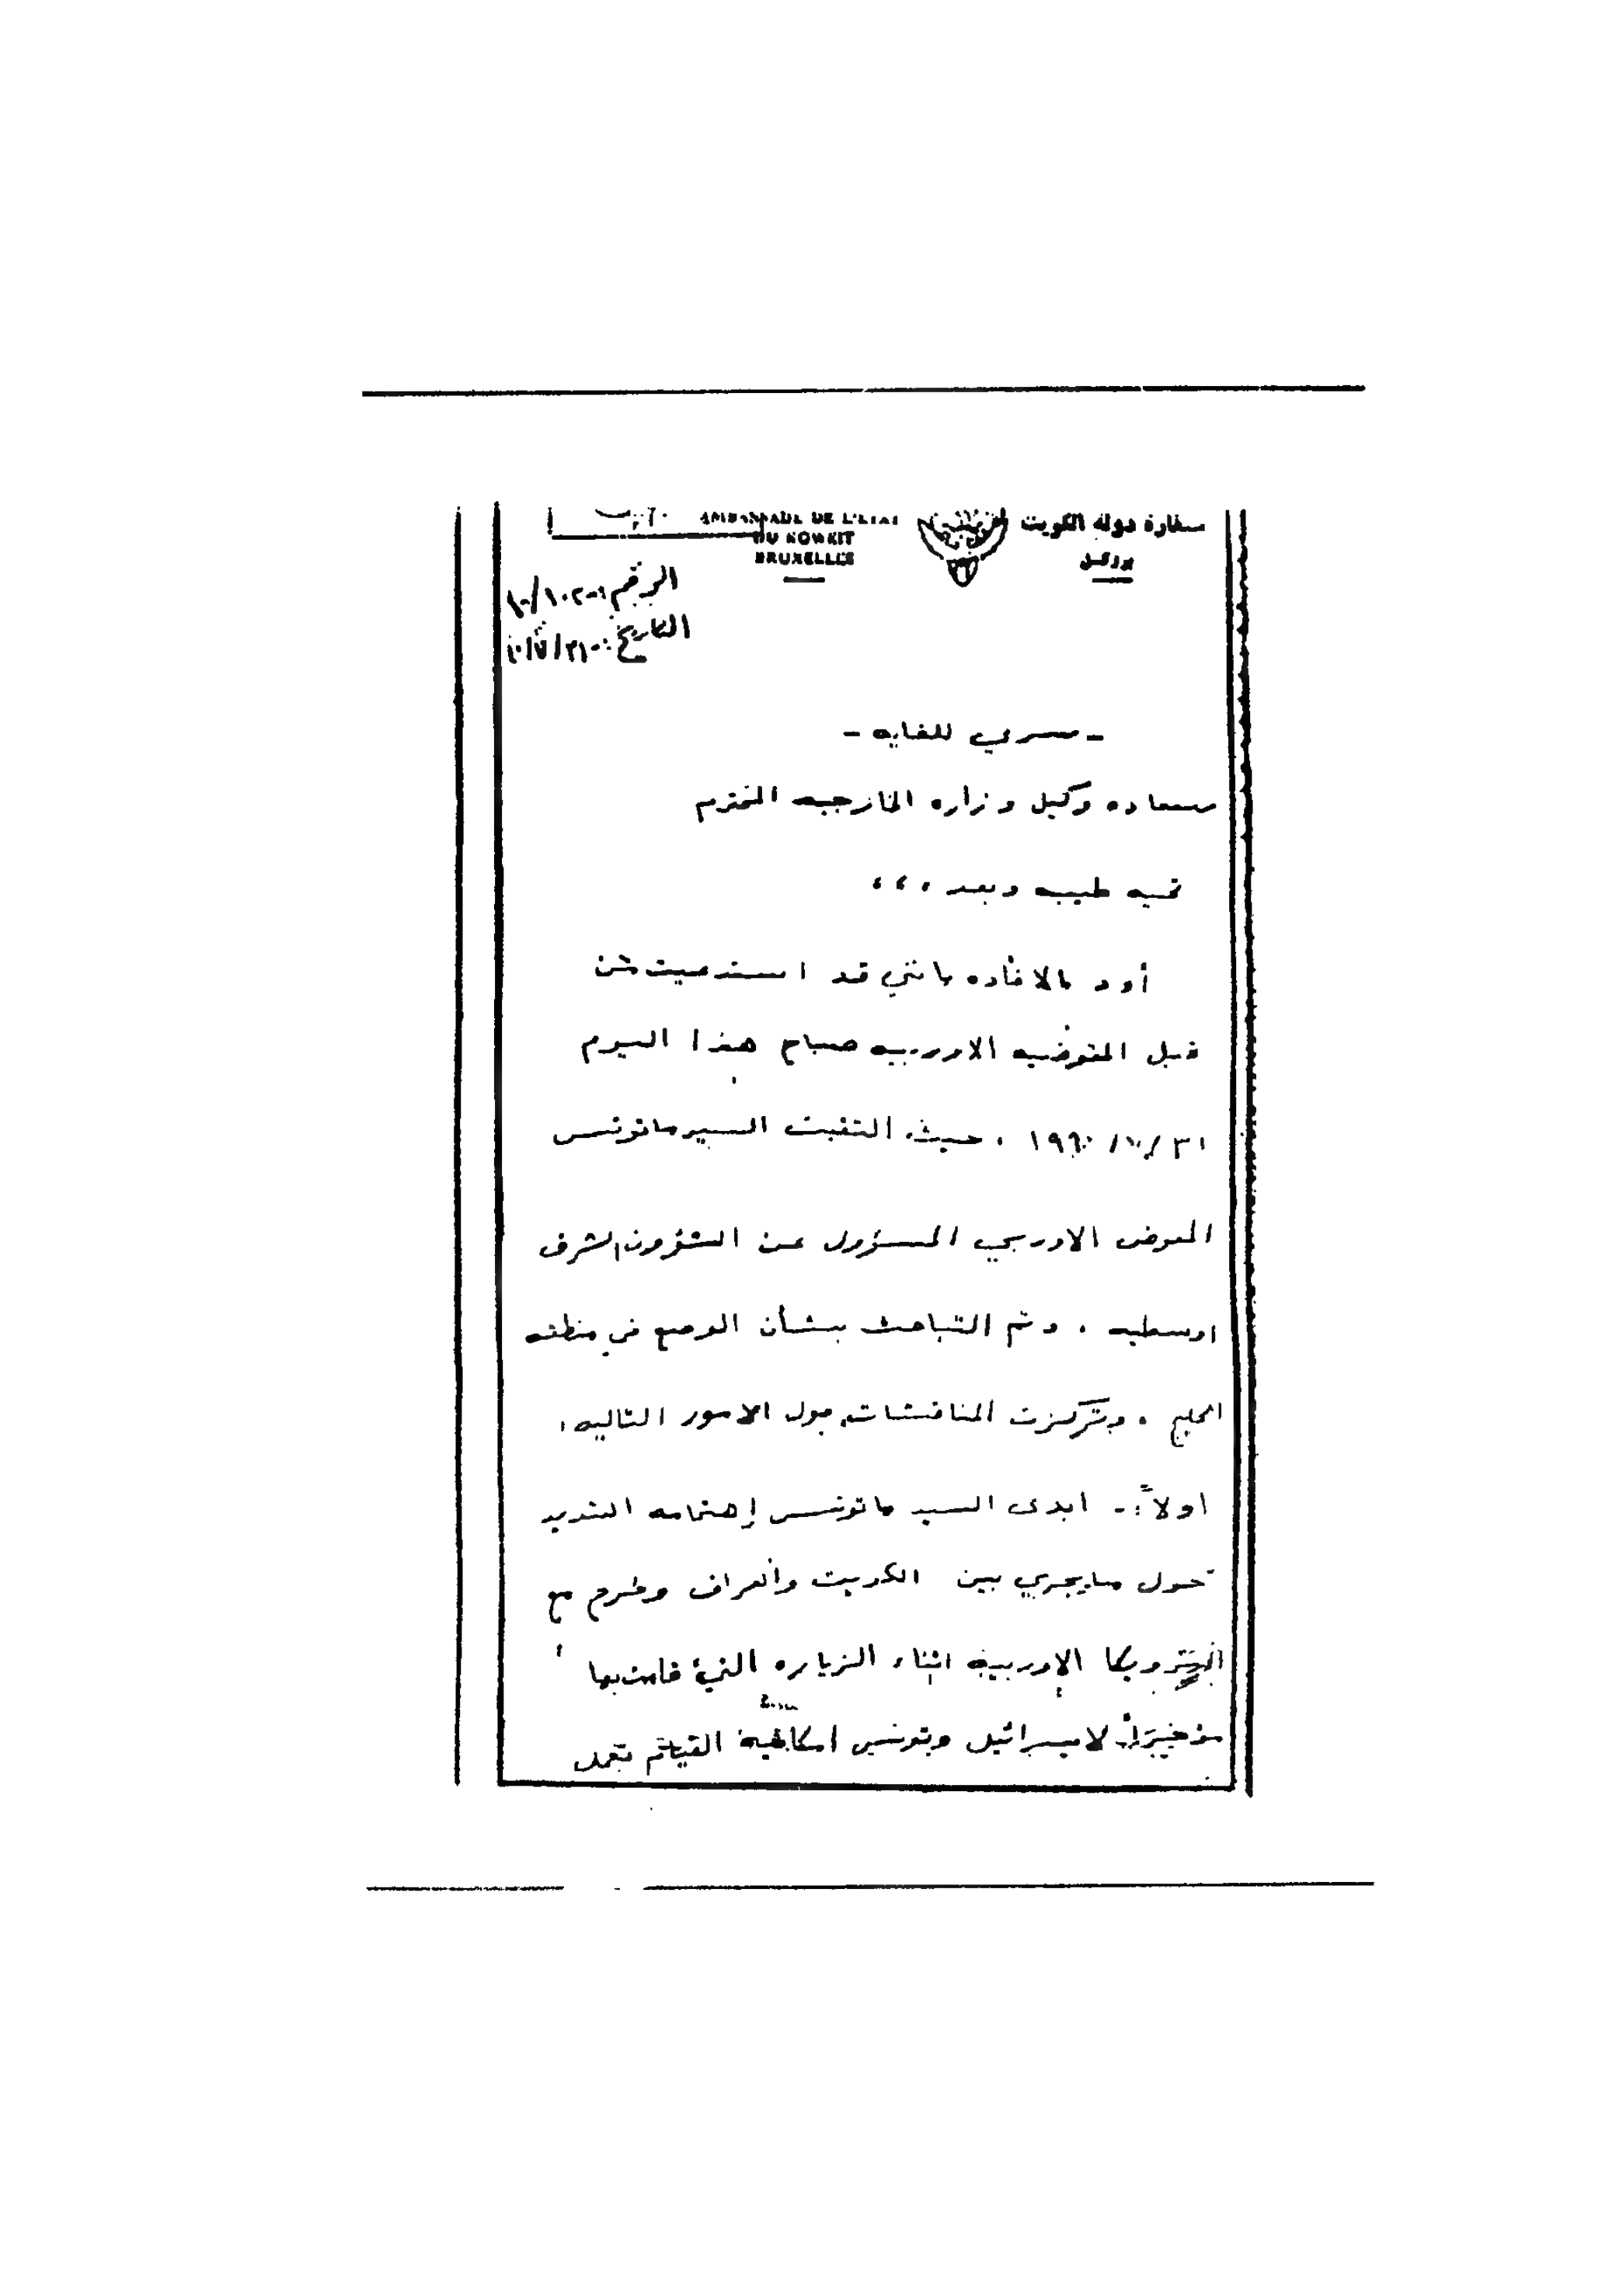 سفارة دولة الكويت
بروكسل
AMBASSADE DE L'ETAT
DU KOWEIT
BRUXELLES
الرقم :-
التاريخ :-
- سري للغايه -
سعاده وكيل وزاره الخارجيه المحترم
تحيه طيبه وبعد ،،،
أود بالافاده بانني قد استدعيت من
قبل المفوضيه الاوربيه صباح هذا اليوم
٣١ /٧/ ١٩٩٠ ، حيث التقيت السيد ماتوتس
المفوض الاوربي المسؤول عن الشؤون الشرق
اوسطيه . وتم التباحث بشأن الوضع في منطقه
الخليج . وتركزت المناقشات حول الامور التاليه :
اولاً :- ابدى السيد ماتوتس إهتمامه الشديد
حول مايجري بين الكويت والعراق وطرح مع
الترويكا الاوربيه اثناء الزياره التي قامت بها
مؤخراً لاسرائيل وتونس امكانية القيام بعمل